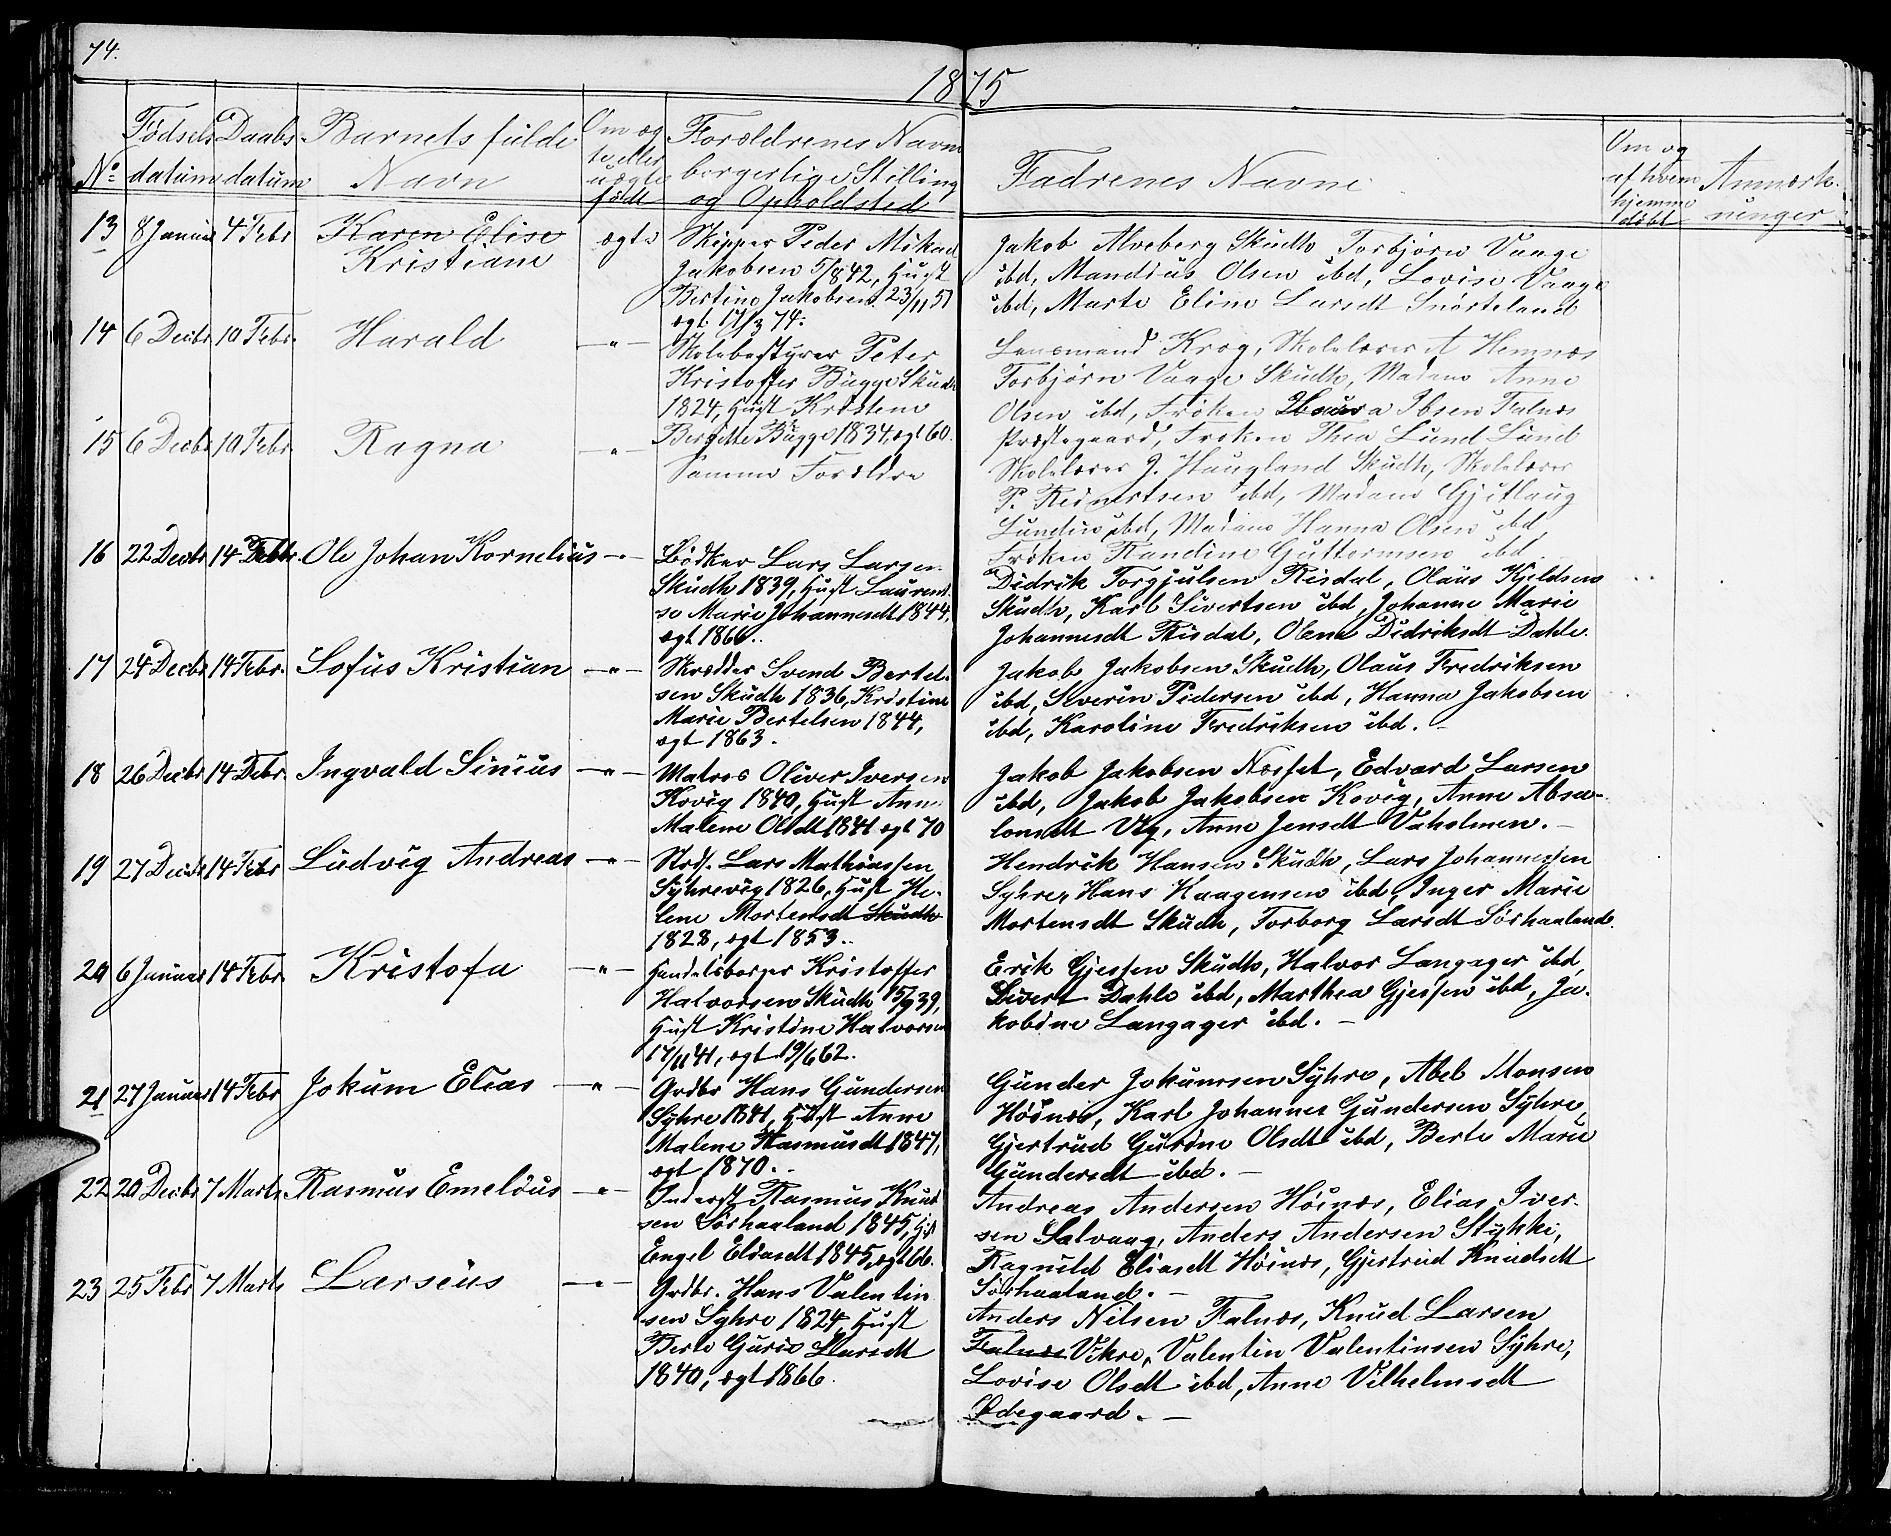 74.
1875
No Fødsels datum Daabs datum Barnets fulde Navn Om ægte eller uægte født Forældrenes Navn borgerlige Stilling og Opholdsted Fadrenes Navne Om og af hvem hjemme døbt Anmærkninger
13 8 Januar 4 Febr Karen Elise Kristiane ægte
Skipper Peder Mikael
Jakobsen 5/8 42, Hust
Bertine Jakobsen 23/11 51
ægt. 17/3 74.
Jakob Alveberg Skudh, Torbjørn Vaage
ibd, Mandius Olsen ibd, Lovise Vaage
ibd, Marte Eline Larsdt Snørteland
14 6 Decbr 10 Febr. Harald —"—
Skolebestyrer Peter
Kristoffer Bugge Skudh
1824, Hust Kristine
Bergitte Bugge 1834, ægt 60.
Lensmand Krog, Skolelærer A Hemnæs
Torbjørn Vaage Skudh, Madame Anne
Olsen ibd, Frøken Ibsen Falnæs
Præstegaard, Frøken Thea Lund Lund
15 6 Decbr 10 Febr. Ragna —"—
Samme Forældre
Skolelærer J. Haugland Skudh, Skolelærer
P. Reinertsen ibd, Madame Gjutlaug
Lundin ibd, Madame Hanna Olsen ibd
Frøken Randine Guttormsen ibd.
16 22 Decbr 14 Febr. Ole Johan Kornelius —"—
Bødker Lars Larsen
Skudh 1839, Hust Laurent
se Marie Johannesdt 1844,
ægt 1866.
Didrik Torgjulsen Risdal, Olaus Kjeldsen
Skudh, Karl Sivertsen ibd, Johanne Marie
Johannesdt Risdal, Olene Didriksdt Dahle.
17 24 Decbr 14 Febr. Sofus Kristian —"—
Skrædder Svend Bertel-
sen Skudh 1836, Kristine
Marie Bertelsen 1844,
ægt 1863.
Jakob Jakobsen Skudh, Olaus Fredriksen
ibd, Severin Pedersen ibd, Hanna Jakobsen
ibd, Karoline Fredriksen ibd. —
18 26 Decbr 14 Febr. Ingvald Sinius —"—
Matros Oliver Iversen
Kovig 1840, Hust Anne
Malene Olsdt 1841 ægt 70
Jakob Jakobsen Næsset, Edvard Larsen
ibd, Jakob Jakobsen Kovig, Anne Absa-
lomsdt Vig, Anne Jensdt Vaholmen. —
19 27 Decbr 14 Febr Ludvig Andreas —"—
Lars Mathiassen
Syhrevig 1826, Hust He-
lene Mortensdt Skudh
1828, ægt 1853.
Hendrik Hansen Skudh, Lars Johannessen
Syhre, Hans Haagensen ibd, Inger Marie
Mortensdt Skudh, Torborg Larsdt Sørhaaland.
20 6 Januar 14 Febr. Kristofa —"—
Handelsborger Kristoffer
Halvorsen Skudh 15/9 39,
Hust Kristine Halvorsen
17/11 41, ægt 19/6 62.
Erik Gjessen Skudh, Halvor Langager ibd,
Sivert Dahle ibd, Marthea Gjessen ibd, Ja-
kobine Langager ibd. —
21 27 Januar 14 Febr Jokum Elias —"—
Grdbr Hans Gundersen
Syhre 1841, Hust Anne
Malene Rasmusdt 1847,
ægt 1870.
Gunder Jokumsen Syhre, Abel Monsen
Høinæs, Karl Johannes Gundersen Syhre,
Gjertrud Gurine Olsdt ibd, Berte Marie
Gundersdt ibd. —
22 20 Decbr 7 Marts Rasmus Emelius —"—
Inderst Rasmus Knud
sen Sørhaaland 1845, Hst
Engel Eliasdt 1845, ægt 66.
Andreas Andersen Høinæs, Elias Iver-
sen Salvaag, Anders Andersen Stykki,
Ragnild Eliasdt Høinæs, Gjertrud Knudsdt
Sørhaaland. —
23 25 Febr 7 Marts Larseus —"—
Grdbr. Hans Valentin
sen Syhre 1824, Hust
Berte Guris Larsdt
1840, ægt 1866.
Anders Nilsen Falnæs, Knud Larsen
Falnæs Vikre, Valentin Valentinsen Syhre,
Lovise Olsdt ibd, Anne Vilhelmsdt
Ødegaard. —